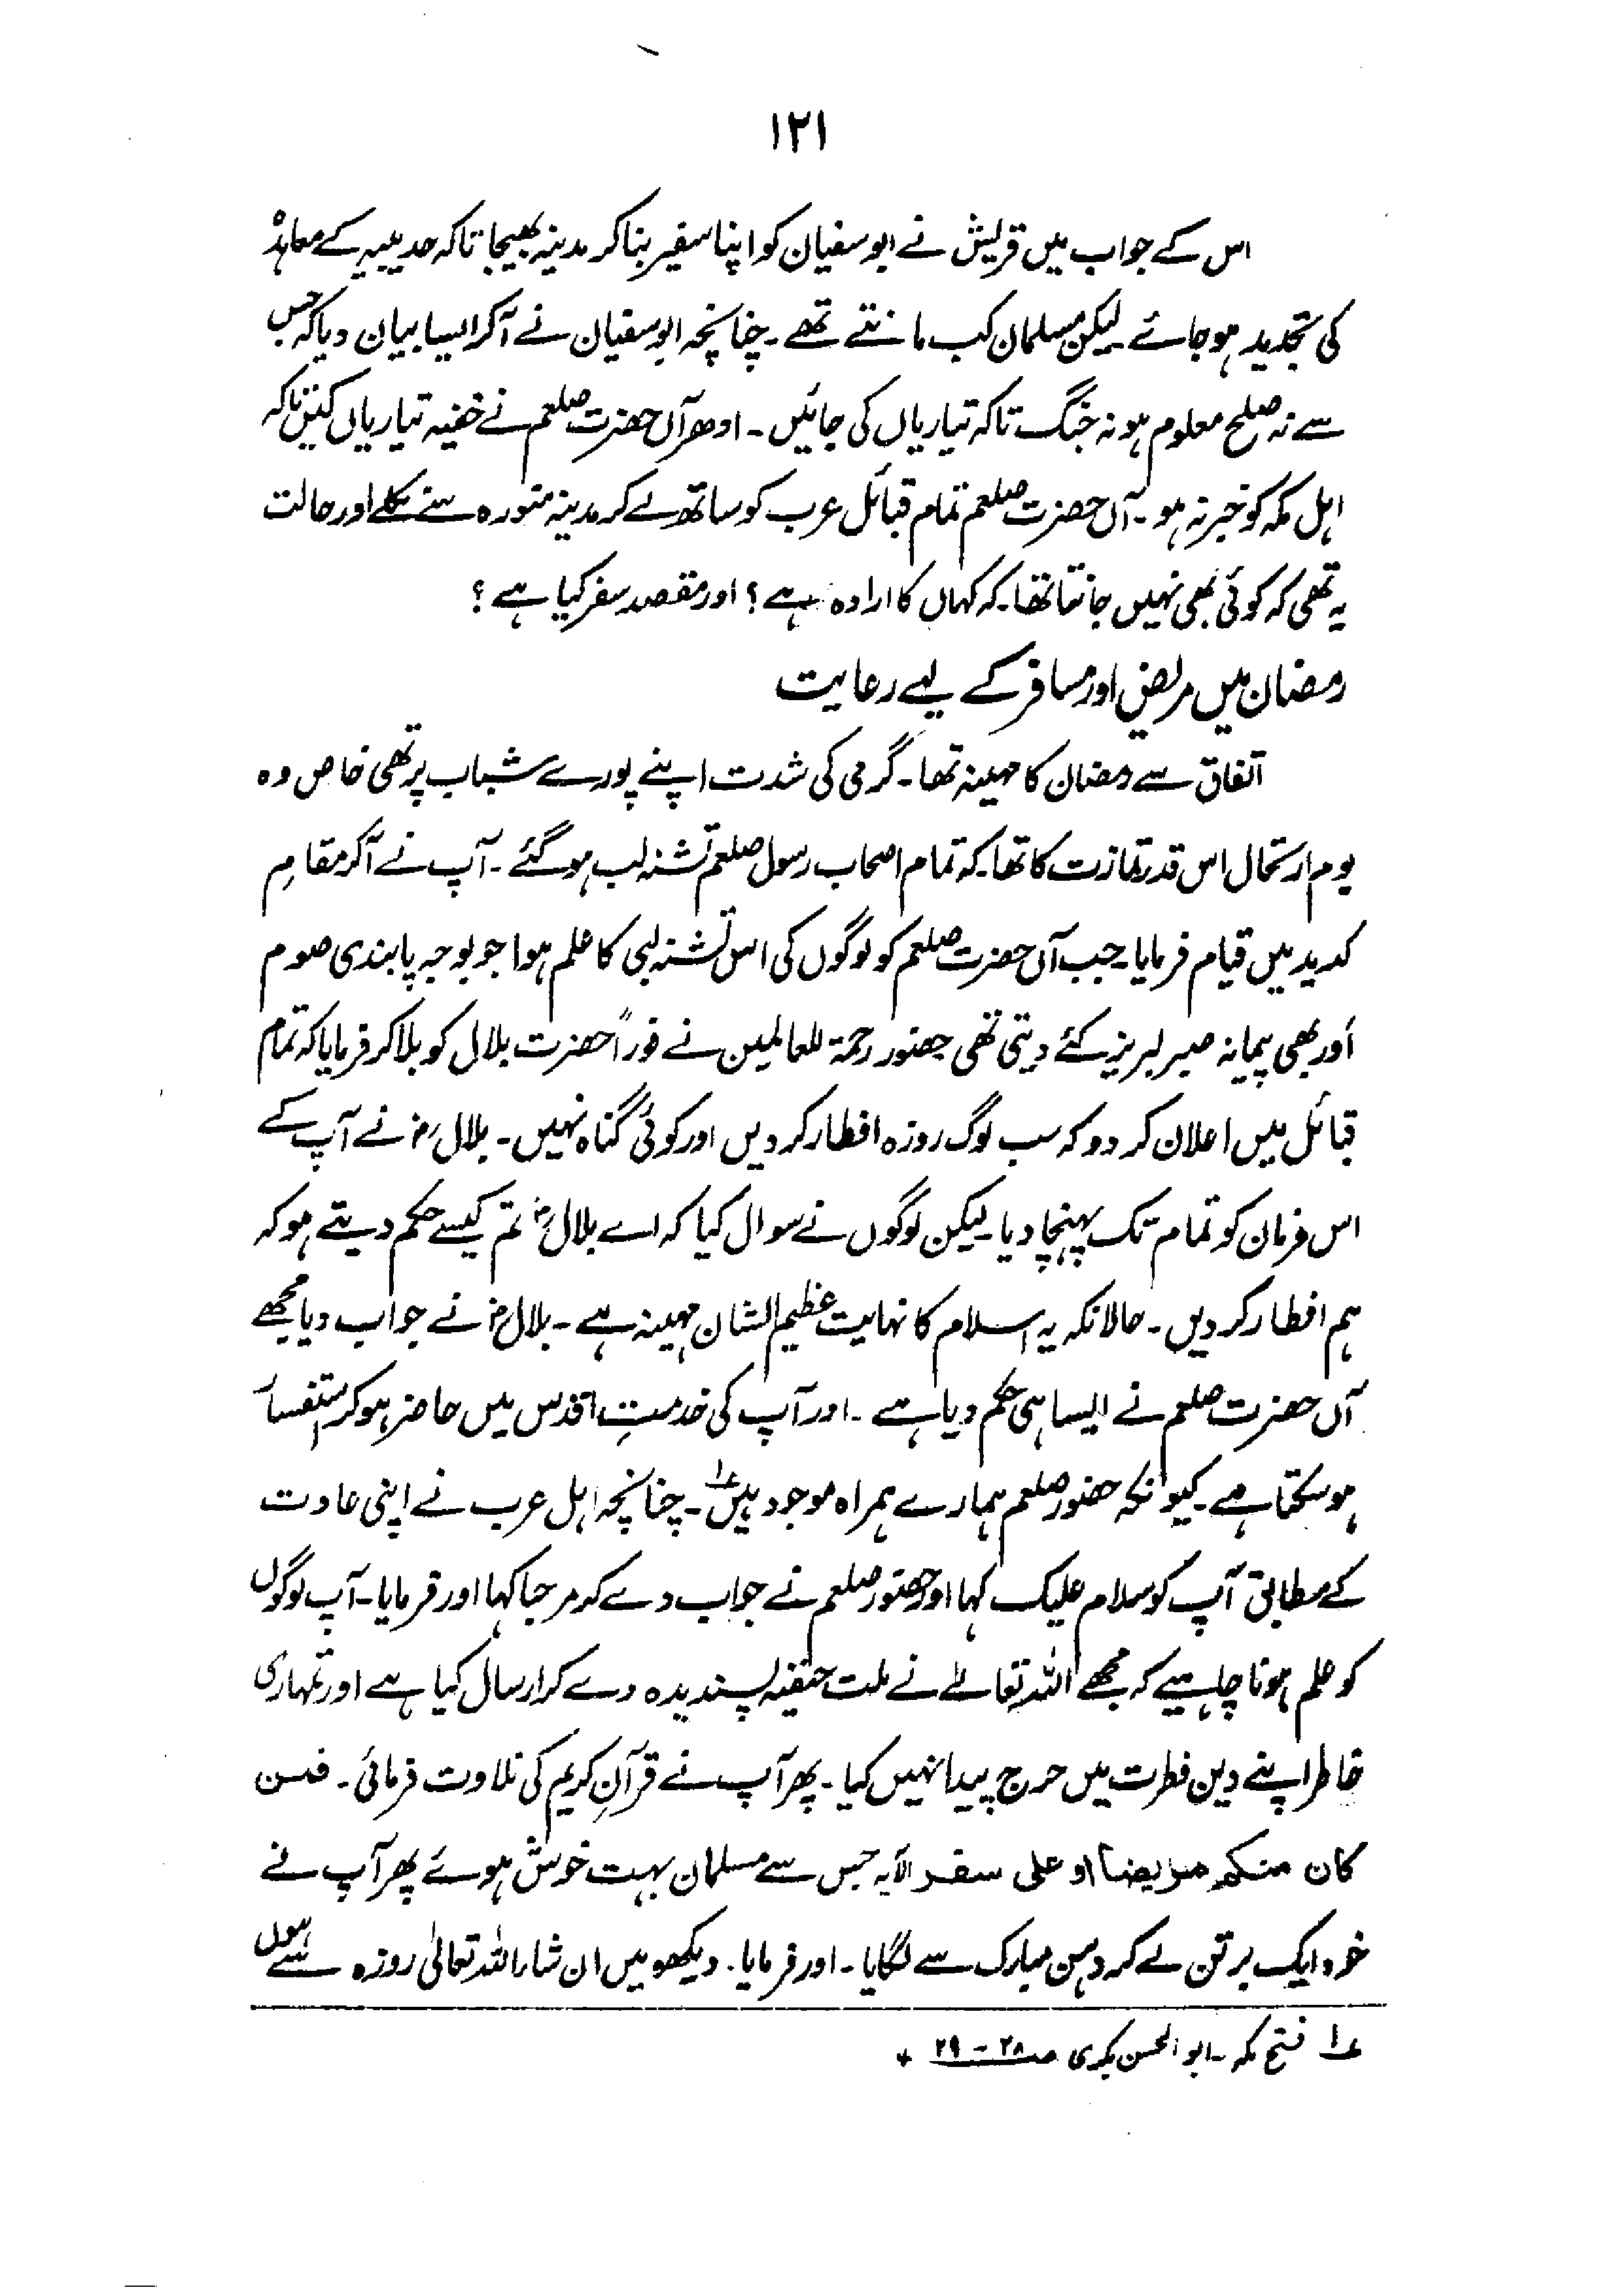 ۱۲۱
اس کے جواب میں قریش نے ابوسفیان کو اپنا سفیر بنا کر مدینہ بھیجا تاکہ حدیبیہ کے معاہدہ
کی تجدید ہو جائے۔ لیکن مسلمان کب مانتے تھے۔ چنانچہ ابوسفیان نے آکر ایسا بیان دیا کہ جس
سے نہ صلح معلوم ہو نہ جنگ تاکہ تیاریاں کی جائیں۔ ادھر آں حضرت صلعم نے خفیہ تیاریاں کیں تاکہ
اہل مکہ کو خبر نہ ہو۔ آں حضرت صلعم تمام قبائل عرب کو ساتھ لے کر مدینہ منورہ سے نکلے اور حالت
یہ تھی کہ کوئی بھی نہیں جانتا تھا۔ کہ کہاں کا ارادہ ہے؟ اور مقصد سفر کیا ہے؟
رمضان میں مریض اور مسافر کے لیے رعایت
اتفاق سے رمضان کا مہینہ تھا۔ گرمی کی شدت اپنے پورے شباب پر تھی خاص وہ
یوم ارتحال اس قدر تمازت کا تھا۔ کہ تمام اصحاب رسول صلعم تشنہ لب ہو گئے۔ آپ نے آکر مقامِ
کدید میں قیام فرمایا۔ جب آں حضرت صلعم کو لوگوں کی اس تشنہ لبی کا علم ہوا جو بوجہ پابندی صوم
اور بھی پیمانہ صبر لبریز کئے دیتی تھی حضور رحمۃ للعالمین نے فوراً حضرت بلال کو بلا کر فرمایا کہ تمام
قبائل میں اعلان کر دو کہ سب لوگ روزہ افطار کر دیں اور کوئی گناہ نہیں۔ بلالؓ نے آپ کے
اس فرمان کو تمام تک پہنچا دیا۔ لیکن لوگوں نے سوال کیا کہ اے بلالؓ تم کیسے حکم دیتے ہو کہ
ہم افطار کر دیں۔ حالانکہ یہ اسلام کا نہایت عظیم الشان مہینہ ہے۔ بلالؓ نے جواب دیا مجھے
آں حضرت صلعم نے ایسا ہی حکم دیا ہے۔ اور آپ کی خدمتِ اقدس میں حاضر ہو کر استفسار
ہو سکتا ہے۔ کیونکہ حضور صلعم ہمارے ہمراہ موجود ہیں؏۱۔ چنانچہ اہل عرب نے اپنی عادت
کے مطابق آپ کو سلام علیک کہا اور حضور صلعم نے جواب دے کر مرحبا کہا اور فرمایا۔ آپ لوگوں
کو علم ہونا چاہیے کہ مجھے اللہ تعالےٰ نے ملت حنفیہ پسندیدہ دے کر ارسال کیا ہے اور تمہاری
خاطر اپنے دین فطرت میں حرج پیدا نہیں کیا۔ پھر آپ نے قرآنِ کریم کی تلاوت فرمائی۔ فمن
کان منکم مریضا او علی سفر الآیہ جس سے مسلمان بہت خوش ہوئے پھر آپ نے
خود ایک برتن لے کر دہن مبارک سے لگایا۔ اور فرمایا۔ دیکھو میں ان شاء اللہ تعالیٰ روزہ سے ہوں
؏۱ فتح مکہ۔ ابو الحسن بکری صـ ۲۸ - ۲۹ *